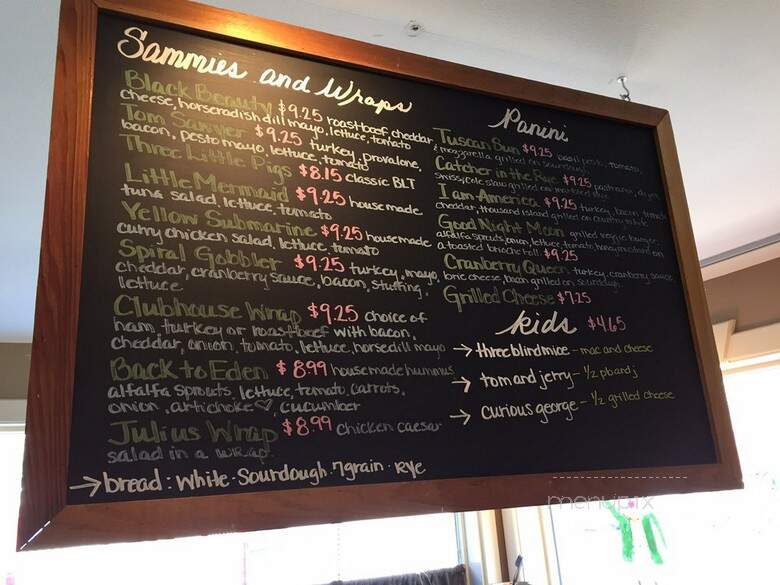 Sammies and Wraps
Black Beauty $9.25 roast beef, cheddar
cheese, horseradish dill mayo, lettuce, tomato
Tom Sawyer $9.25 turkey, provalone,
bacon, pesto mayo lettuce, tomato
Three Little Pigs $8.15 classic BLT
Little Mermaid $9.25 house made
tuna salad, lettuce, tomato
Yellow Submarine $9.25 housemade
curry chicken salad, lettuce tomato
Spiral Gobbler $9.25 turkey, mayo,
cheddar, cranberry sauce, bacon, stuffing,
lettuce
Clubhouse Wrap $9.25 choice of
ham, turkey or roast beef with bacon,
cheddar, onion, tomato, lettuce, horsedill mayo
Back to Eden $8.99 housemade hummus,
alfalfa sprouts, lettuce, tomato, carrots,
onion, artichoke ♡, cucumber
Julius Wrap $8.99 chicken caesar
salad in a wrap.
→ bread: White · Sourdough · 7grain · Rye
Panini
Tuscan Sun $9.25 basil pesto, tomato,
& mozzarella grilled on
Catcher in the Rye $9.25 pastrami,
swiss, cole slaw grilled on
I am America $9.25 turkey, bacon, tomato
cheddar, thousand island grilled on
Good Night Moon grilled veggie burger,
alfalfa sprouts, onion, lettuce, tomato, honey mustard on
a toasted brioche roll $9.25
Cranberry Queen turkey, cranberry sauce
cheese, bacon grilled on sourdough
Grilled Cheese $7.25
kids $4.65
→ three blind mice - mac and cheese
→ tom and jerry - 1/2 pb and j
→ curious george - 1/2 grilled cheese
menupix